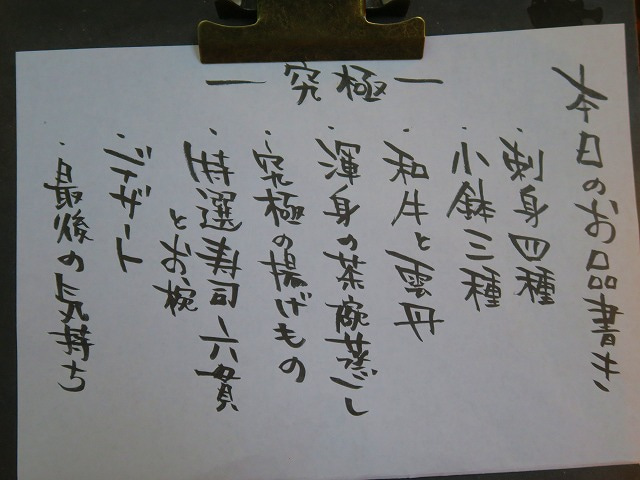 本日のお品書き
― 究極 ―
・刺身四種
・小鉢三種
・和牛と雲丹
・渾身の茶碗蒸し
・究極の揚げもの
・特選寿司 六貫
とお椀
・デザート
・最後の気持ち